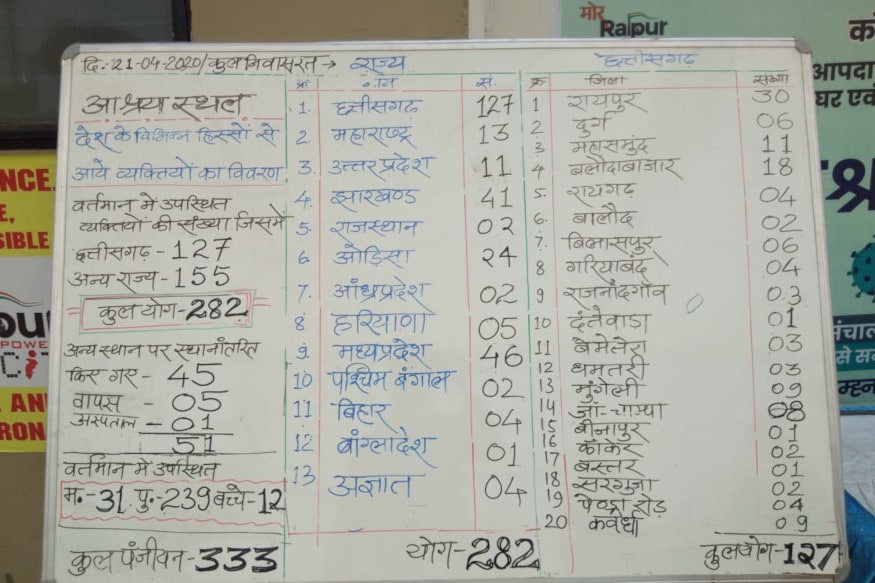 मोर
Raipur
दि.-21-04-2020/कुल निवासरत → राज्य
छत्तीसगढ़
आश्रय स्थल
देश के विभिन्न हिस्सों से
आये व्यक्तियों का विवरण
वर्तमान में उपस्थित
व्यक्तियों की संख्या जिसमें
छत्तीसगढ़ - 127
अन्य राज्य - 155
कुल योग - 282
अन्य स्थान पर स्थानांतरित
किए गए - 45
वापस - 05
अस्पताल - 01
51
वर्तमान में उपस्थित
म.-31 पु.-239 बच्चे-12
कुल पंजीयन - 333
क्रं नाम सं.
1. छत्तीसगढ़ 127
2. महाराष्ट्र 13
3. उत्तर प्रदेश 11
4. झारखण्ड 41
5. राजस्थान 02
6 ओड़िसा 24
7. आंध्रप्रदेश 02
8 हरियाणा 05
9 मध्यप्रदेश 46
10 पश्चिम बंगाल 02
11 बिहार 04
12 बांग्लादेश 01
13 अज्ञात 04
योग - 282
क्र जिला संख्या
1 रायपुर 30
2 दुर्ग 06
3 महासमुंद 11
4 बलौदाबाजार 18
5. रायगढ़ 04
6. बालौद 02
7. बिलासपुर 06
8 गरियाबंद 04
9 राजनांदगाँव 03
10 दंतेवाडा 01
11 बेमेतरा 03
12 धमतरी 03
13 मुंगेली 09
14 जां-चाम्पा 08
15 बीजापुर 01
16 कांकेर 02
17 बस्तर 01
18 सरगुजा 02
19 पेण्ड्रा रोड़ 04
20 कवर्धा 09
कुल योग - 127
NCE.
E,
SIBLE
pur
AN
RON
आपदा
घर एवं
से स